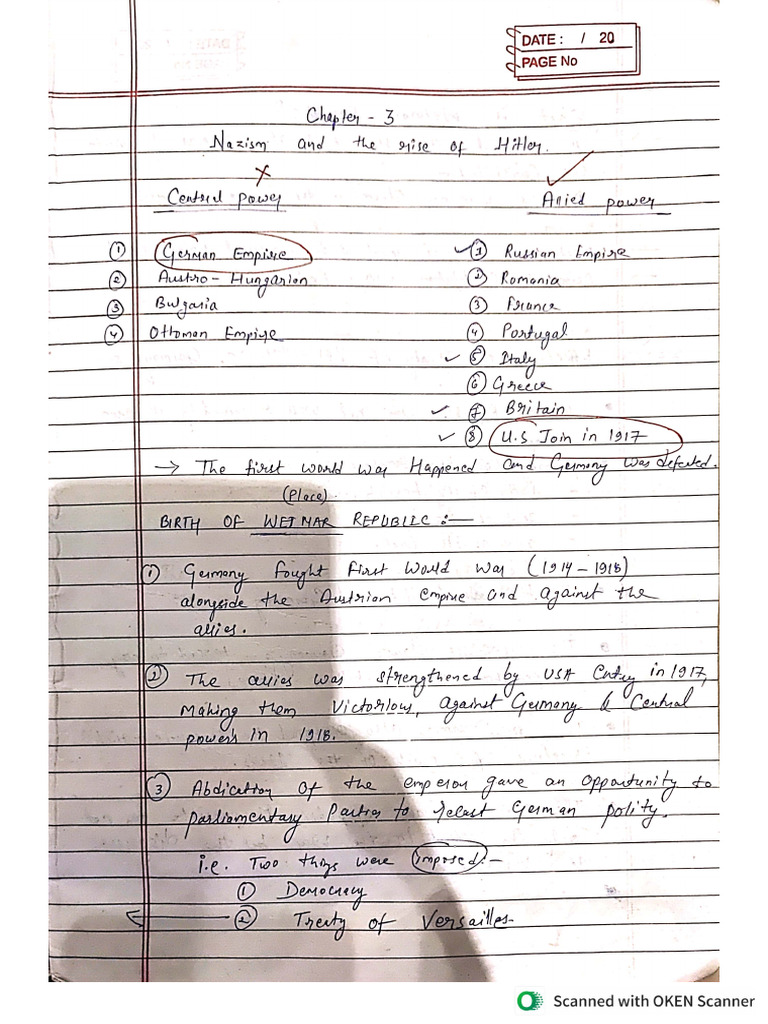 DATE: / 20
PAGE No
Chapter - 3
Nazism and the rise of Hitler.
Central power Allied power
① German Empire ① Russian Empire
② Austro-Hungarian ② Romania
③ Bulgaria ③ France
④ Ottoman Empire ④ Portugal
⑤ Italy
⑥ Greece
⑦ Britain
⑧ U.S Join in 1917
→ The first world war Happened and Germany was defeated.
(Place)
BIRTH OF WEIMAR REPUBLIC :—
① Germany fought First World War (1914-1918)
alongside the Austrian empire and against the
allies.
② The allies was strengthened by USA Entry in 1917,
Making them Victorious, against Germany & Central
power's in 1918.
③ Abdication of the emperor gave an opportunity to
parliamentary Parties to recast German polity.
i.e. Two things were imposed:-
① Democracy
② Treaty of Versailles-
Scanned with OKEN Scanner